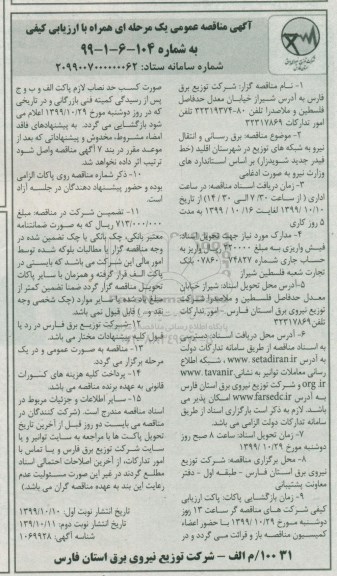 آگهی مناقصه عمومی یک مرحله ای همراه با ارزیابی کیفی
به شماره ۱۰۴-۶-۱-۹۹
شماره سامانه ستاد: ۲۰۹۹۰۷۰۰۰۰۰۰۰۶۲
۱- نام مناقصه گزار: شرکت توزیع برق
فارس به آدرس شیراز خیابان معدل حدفاصل
فلسطین و ملاصدرا تلفن ۸۰-۳۲۳۱۹۳۷۴ تلفن
امور تدارکات ۳۲۳۱۷۸۶۹
۲- موضوع مناقصه: برق رسانی و انتقال
نیرو به شبکه های توزیع در شهرستان اقلید (خط
فیدر جدید شویدزار) بر اساس استاندارد های
وزارت نیرو به صورت ادغامی
۳- زمان دریافت اسناد مناقصه: در ساعت
اداری (از ساعت ۷/۳۰ الی ۱۴/۳۰) از تاریخ
۱۳۹۹/۱۰/۱۰ لغایت ۱۳۹۹/۱۰/۱۶ به مدت
۵ روز کاری
۴- مدارک مورد نیاز جهت تحویل اسناد:
فیش واریزی به مبلغ ۴۲۰۰۰۰ ریال واریز به
حساب جاری شماره ۰۷۸۶۰۰۷۴۸۲۷ بانک
تجارت شعبه فلسطین شیراز
۵-آدرس محل تحویل اسناد: شیراز خیابان
معدل حدفاصل فلسطین و ملاصدرا شرکت
توزیع نیروی برق استان فارس - امور تدارکات
تلفن ۳۲۳۱۷۸۶۹
۶- آدرس محل دریافت اسناد: دسترسی
به اسناد مناقصه از طریق سامانه تدارکات دولت
به آدرس www.setadiran.ir ، شبکه اطلاع
رسانی معاملات توانیر به نشانی www.tavanir.
org.ir و شرکت توزیع نیروی برق استان فارس
به آدرس www.farsedc.ir امکان پذیر می
باشد. لازم به ذکر است بارگزاری اسناد از طریق
سامانه تدارکات دولت الزامی می باشد.
۷- زمان تحویل اسناد: ساعت ۸ صبح روز
دوشنبه مورخ ۱۳۹۹/۱۰/۲۹
۸- محل برگزاری مناقصه: شرکت توزیع
نیروی برق استان فارس - طبقه اول - دفتر
معاونت پشتیبانی
۹- زمان بازگشایی پاکات: پاکت ارزیابی
کیفی شرکت های مناقصه گر ساعت ۱۳ روز
دوشنبه مورخ ۱۳۹۹/۱۰/۲۹ با حضور اعضاء
کمیسیون مناقصه باز و قرائت می گردد و در
صورت کسب حد نصاب لازم پاکت الف و ب و ج
پس از رسیدگی کمیته فنی بازرگانی و در تاریخی
که در روز دوشنبه مورخ ۱۳۹۹/۱۰/۲۹ اعلام می
شود بازگشایی می گردد. به پیشنهادهای فاقد
امضاء، مشروط، مخدوش و پیشنهاداتی که بعد از
موعد مقرر در بند ۷ آگهی مناقصه واصل شود
ترتیب اثر داده نخواهد شد.
۱۰- ذکر شماره مناقصه روی پاکات الزامی
بوده و حضور پیشنهاد دهندگان در جلسه آزاد
است.
۱۱- تضمین شرکت در مناقصه: مبلغ
۷۱۳/۰۰۰/۰۰۰ ریال که به صورت ضمانتنامه
معتبر بانکی، چک بانکی یا چک تضمین شده در
وجه مناقصه گزار یا مطالبات بلوکه شده توسط
امور مالی این شرکت می باشد که بایستی در
پاکت الف قرار گرفته و همزمان با سایر پاکات
تحویل مناقصه گزار گردد ضمنا تضمین کمتر از
مبلغ یاد شده یا سایر موارد (چک شخصی وجه
نقد و..) قابل قبول نمی باشد.
۱۲- شرکت توزیع برق فارس در رد یا
قبول کلیه پیشنهادات مختار می باشد.
۱۳- مناقصه به صورت عمومی و در یک
مرحله برگزار می گردد.
۱۴- پرداخت کلیه هزینه های کسورات
قانونی به عهده برنده مناقصه می باشد.
۱۵- سایر اطلاعات و جزئیات مربوط در
اسناد مناقصه مندرج است. (شرکت کنندگان در
مناقصه می بایست دو روز قبل از آخرین تاریخ
تحویل پاکت ها با مراجعه به سایت توانیر و یا
سایت شرکت توزیع برق فارس و یا تماس با
امور تدارکات، از آخرین اصلاحات احتمالی اسناد
مطلع گردند در غیر این صورت مسئولیت عدم
رعایت این بند به عهده مناقصه گران می باشد)
تاریخ انتشار نوبت اول: ۱۳۹۹/۱۰/۱۰
تاریخ انتشار نوبت دوم: ۱۳۹۹/۱۰/۱۱
شناسه آگهی: ۱۰۶۹۹۲۸
۱۰۰۳۱/م الف - شرکت توزیع نیروی برق استان فارس